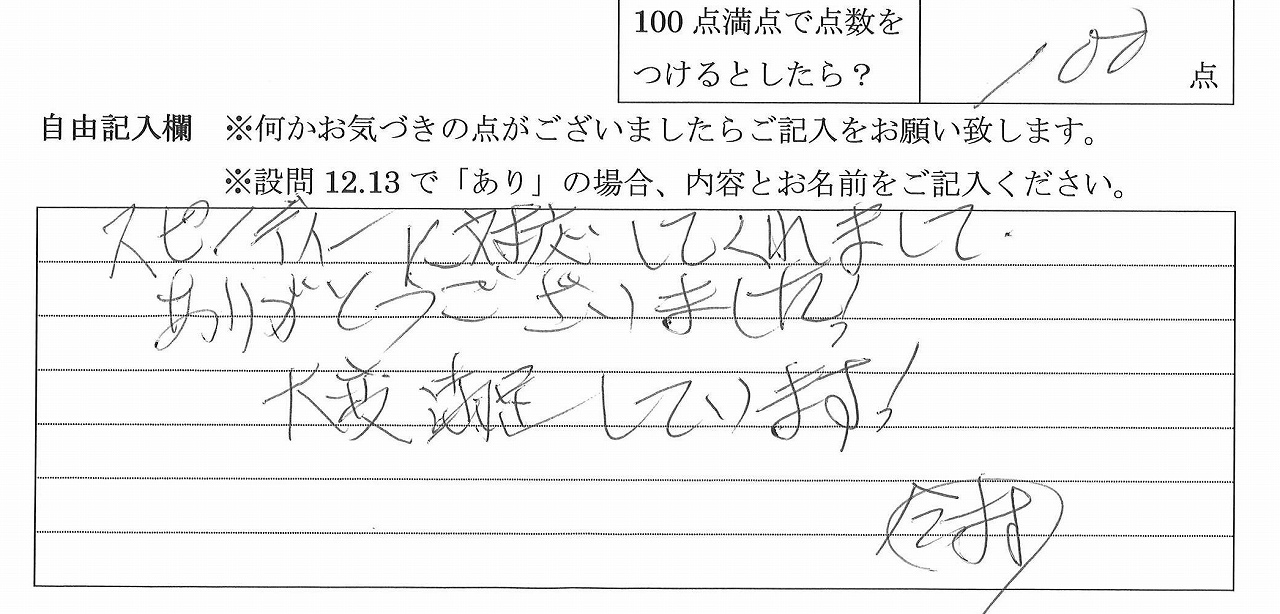 100点満点で点数を
つけるとしたら？
100 点
自由記入欄 ※何かお気づきの点がございましたらご記入をお願い致します。
※設問 12.13 で「あり」の場合、内容とお名前をご記入ください。
スピーディーに対応してくれまして
ありがとうございました！
大変満足しています！